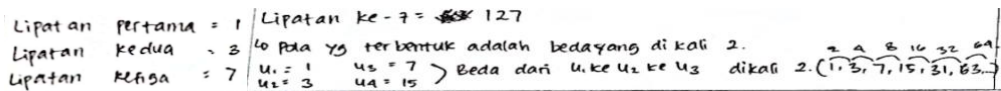 Lipatan pertama = 1
Lipatan kedua = 3
Lipatan ketiga = 7
Lipatan ke-7 = 127
Lo Pola yg terbentuk adalah beda yang di kali 2.
U₁ = 1 U₃ = 7
U₂ = 3 U₄ = 15
) Beda dari U₁ ke U₂ ke U₃ dikali 2. (1, 3, 7, 15, 31, 63...)
2 4 8 16 32 64